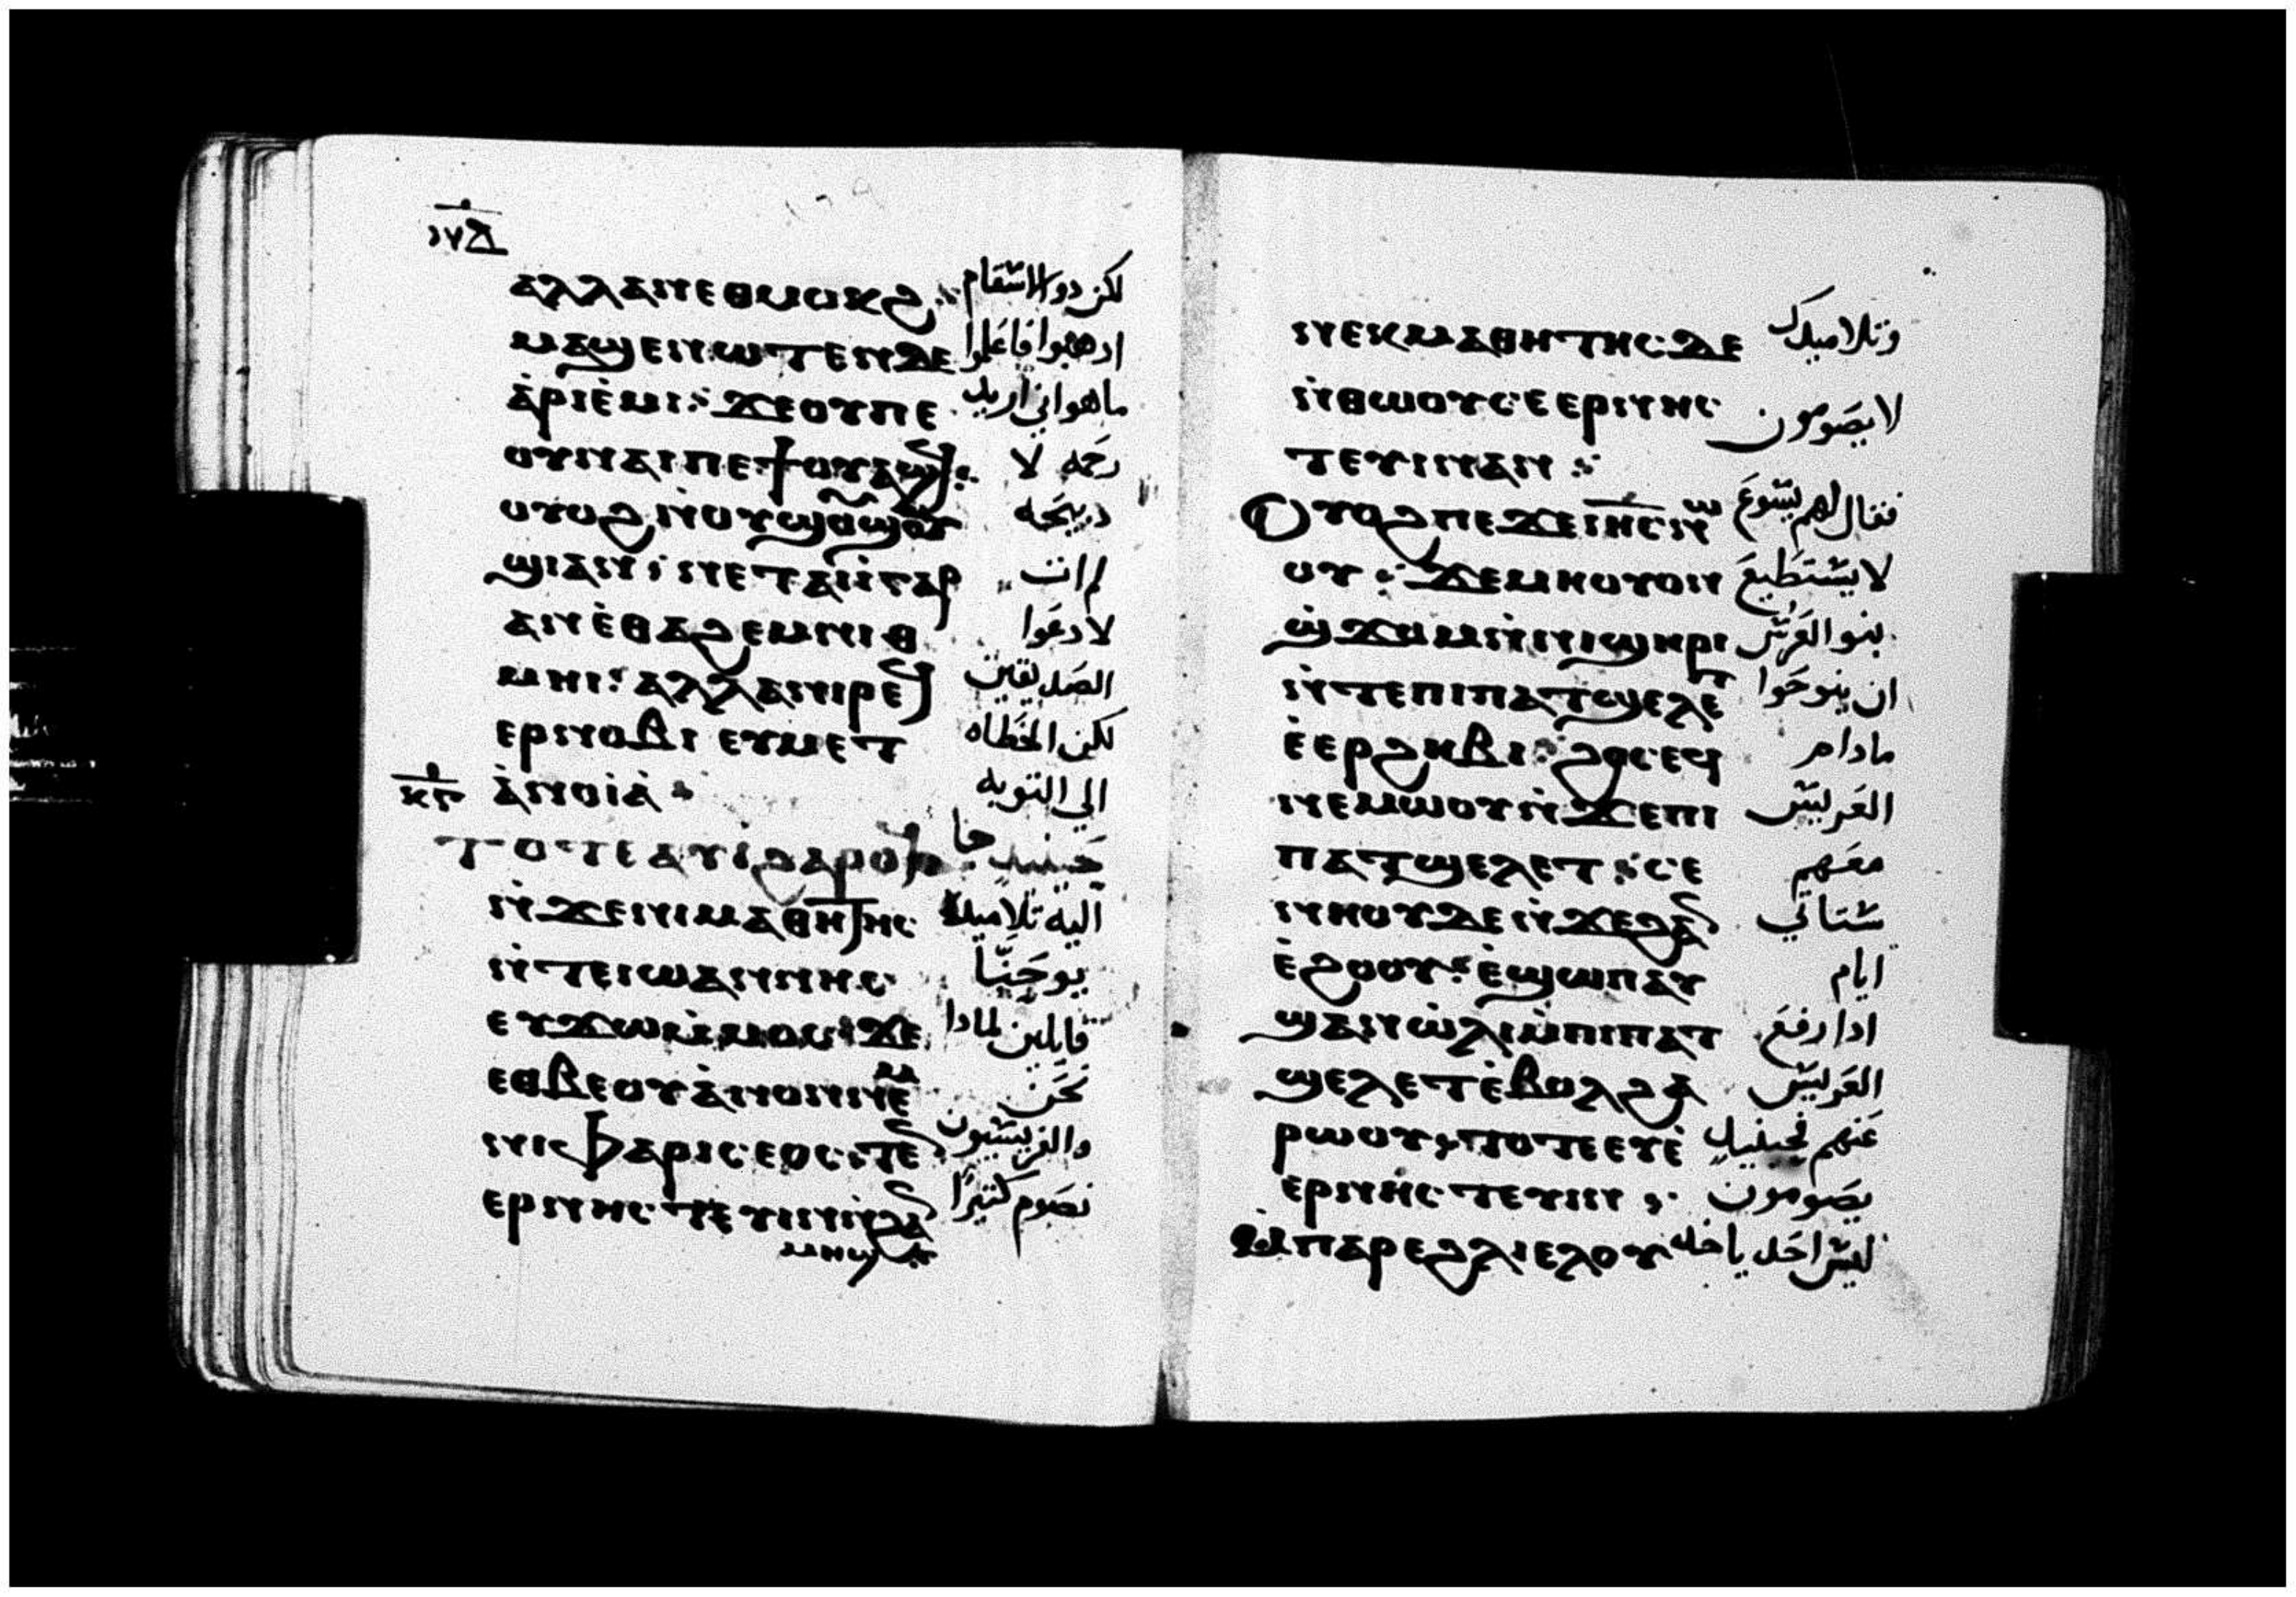 ⲁⲗⲗⲁⲛⲉⲑⲙⲟⲕϩ· لكن ذو الاسقام
ⲙⲁϣⲉⲛⲱⲧⲉⲛⲇⲉ ادهبوا فاعلموا
ⲁ̀ⲣⲓⲉ̀ⲙⲓ: ϫⲉⲟⲩⲡⲉ ماهو اني اريد
ⲟⲩⲛⲁⲓⲡⲉϯⲟⲩⲁϣϥ: رحمه لا
ⲟⲩⲟϩⲛ̀ⲟⲩϣⲟⲩϣⲱⲟⲩ دبيحه
ϣⲓⲁⲛ: ⲛⲉⲧⲁⲓⲓ̀ⲅⲁⲣ لم ات
ⲁⲛⲉ̀ⲑⲁϩⲉⲙⲛⲓⲑ لادعوا
ⲙⲏⲓ: ⲁⲗⲗⲁⲛⲓⲣⲉϥ الصديقين
ⲉⲣⲛⲟⲃⲓ ⲉⲩⲙⲉⲧ لكن الخطاه
ⲁ̀ⲛⲟⲓⲁ̀: الي التوبه
ⲧⲟⲧⲉⲁⲩⲓ̀ϩⲁⲣⲟϥ حينيد جا
ⲛ̀ϫⲉⲛⲓⲙⲁⲑⲏⲧⲏⲥ اليه تلاميد
ⲛ̀ⲧⲉⲓⲱⲁⲛⲛⲏⲥ يوحنا
ⲉⲩϫⲱⲙ̀ⲙⲟⲥ: ϫⲉ قايلين لمادا
ⲉⲑⲃⲉⲟⲩⲁ̀ⲛⲟⲛⲛⲉⲙ نحن
ⲛⲓⲫⲁⲣⲓⲥⲉⲟⲥ:ⲧⲉⲛ والفريسيون
ⲉⲣⲛⲏⲥⲧⲉⲩⲓⲛⲛ̀ϩⲁⲛ نصوم كتيرا
ⲙⲏϣ
ⲛⲉⲕⲙⲁⲑⲏⲧⲏⲥⲇⲉ وتلاميدك
ⲛ̀ⲑⲱⲟⲩⲥⲉⲉⲣⲛⲏⲥ لا يصومون
ⲧⲉⲩⲓⲛⲁⲛ:
Ⲟⲩⲟϩⲡⲉϫⲉⲓⲏⲥⲛⲱ فقال لهم يسوع
ⲟⲩ: ϫⲉⲙⲏⲟⲩⲟⲛ لا يستطيع
ϣ̀ϫⲟⲙⲛ̀ⲛⲓϣⲏⲣⲓ بنو العرس
ⲛ̀ⲧⲉⲡⲓⲡⲁⲧϣⲉⲗⲉⲧ ان ينوحوا
ⲉ̀ⲉⲣϩⲏⲃⲓ: ϩⲟⲥⲉϥ مادام
ⲛⲉⲙⲱⲟⲩⲛ̀ϫⲉⲡⲓ العريس
ⲡⲁⲧϣⲉⲗⲉⲧ: ⲥⲉ معهم
ⲛⲏⲟⲩⲇⲉⲛ̀ϫⲉϩⲁⲛ ستاتي
ⲉ̀ϩⲟⲟⲩ: ⲉ̀ϣⲱⲡⲁⲩ ايام
ϣⲁⲛⲱ̀ⲗⲓⲙ̀ⲡⲓⲡⲁⲧ ادا رفع
ϣⲉⲗⲉⲧⲉ̀ⲃⲟⲗϩⲁ العريس
ⲣⲱⲟⲩ: ⲧⲟⲧⲉⲉⲩⲉ̀ عنهم فحينيد
ⲉⲣⲛⲏⲥⲧⲉⲩⲓⲛ: يصومون
ⲙ̀ⲡⲁⲣⲉϩⲗⲓⲉⲗⲟⲩ ليس احد ياخد